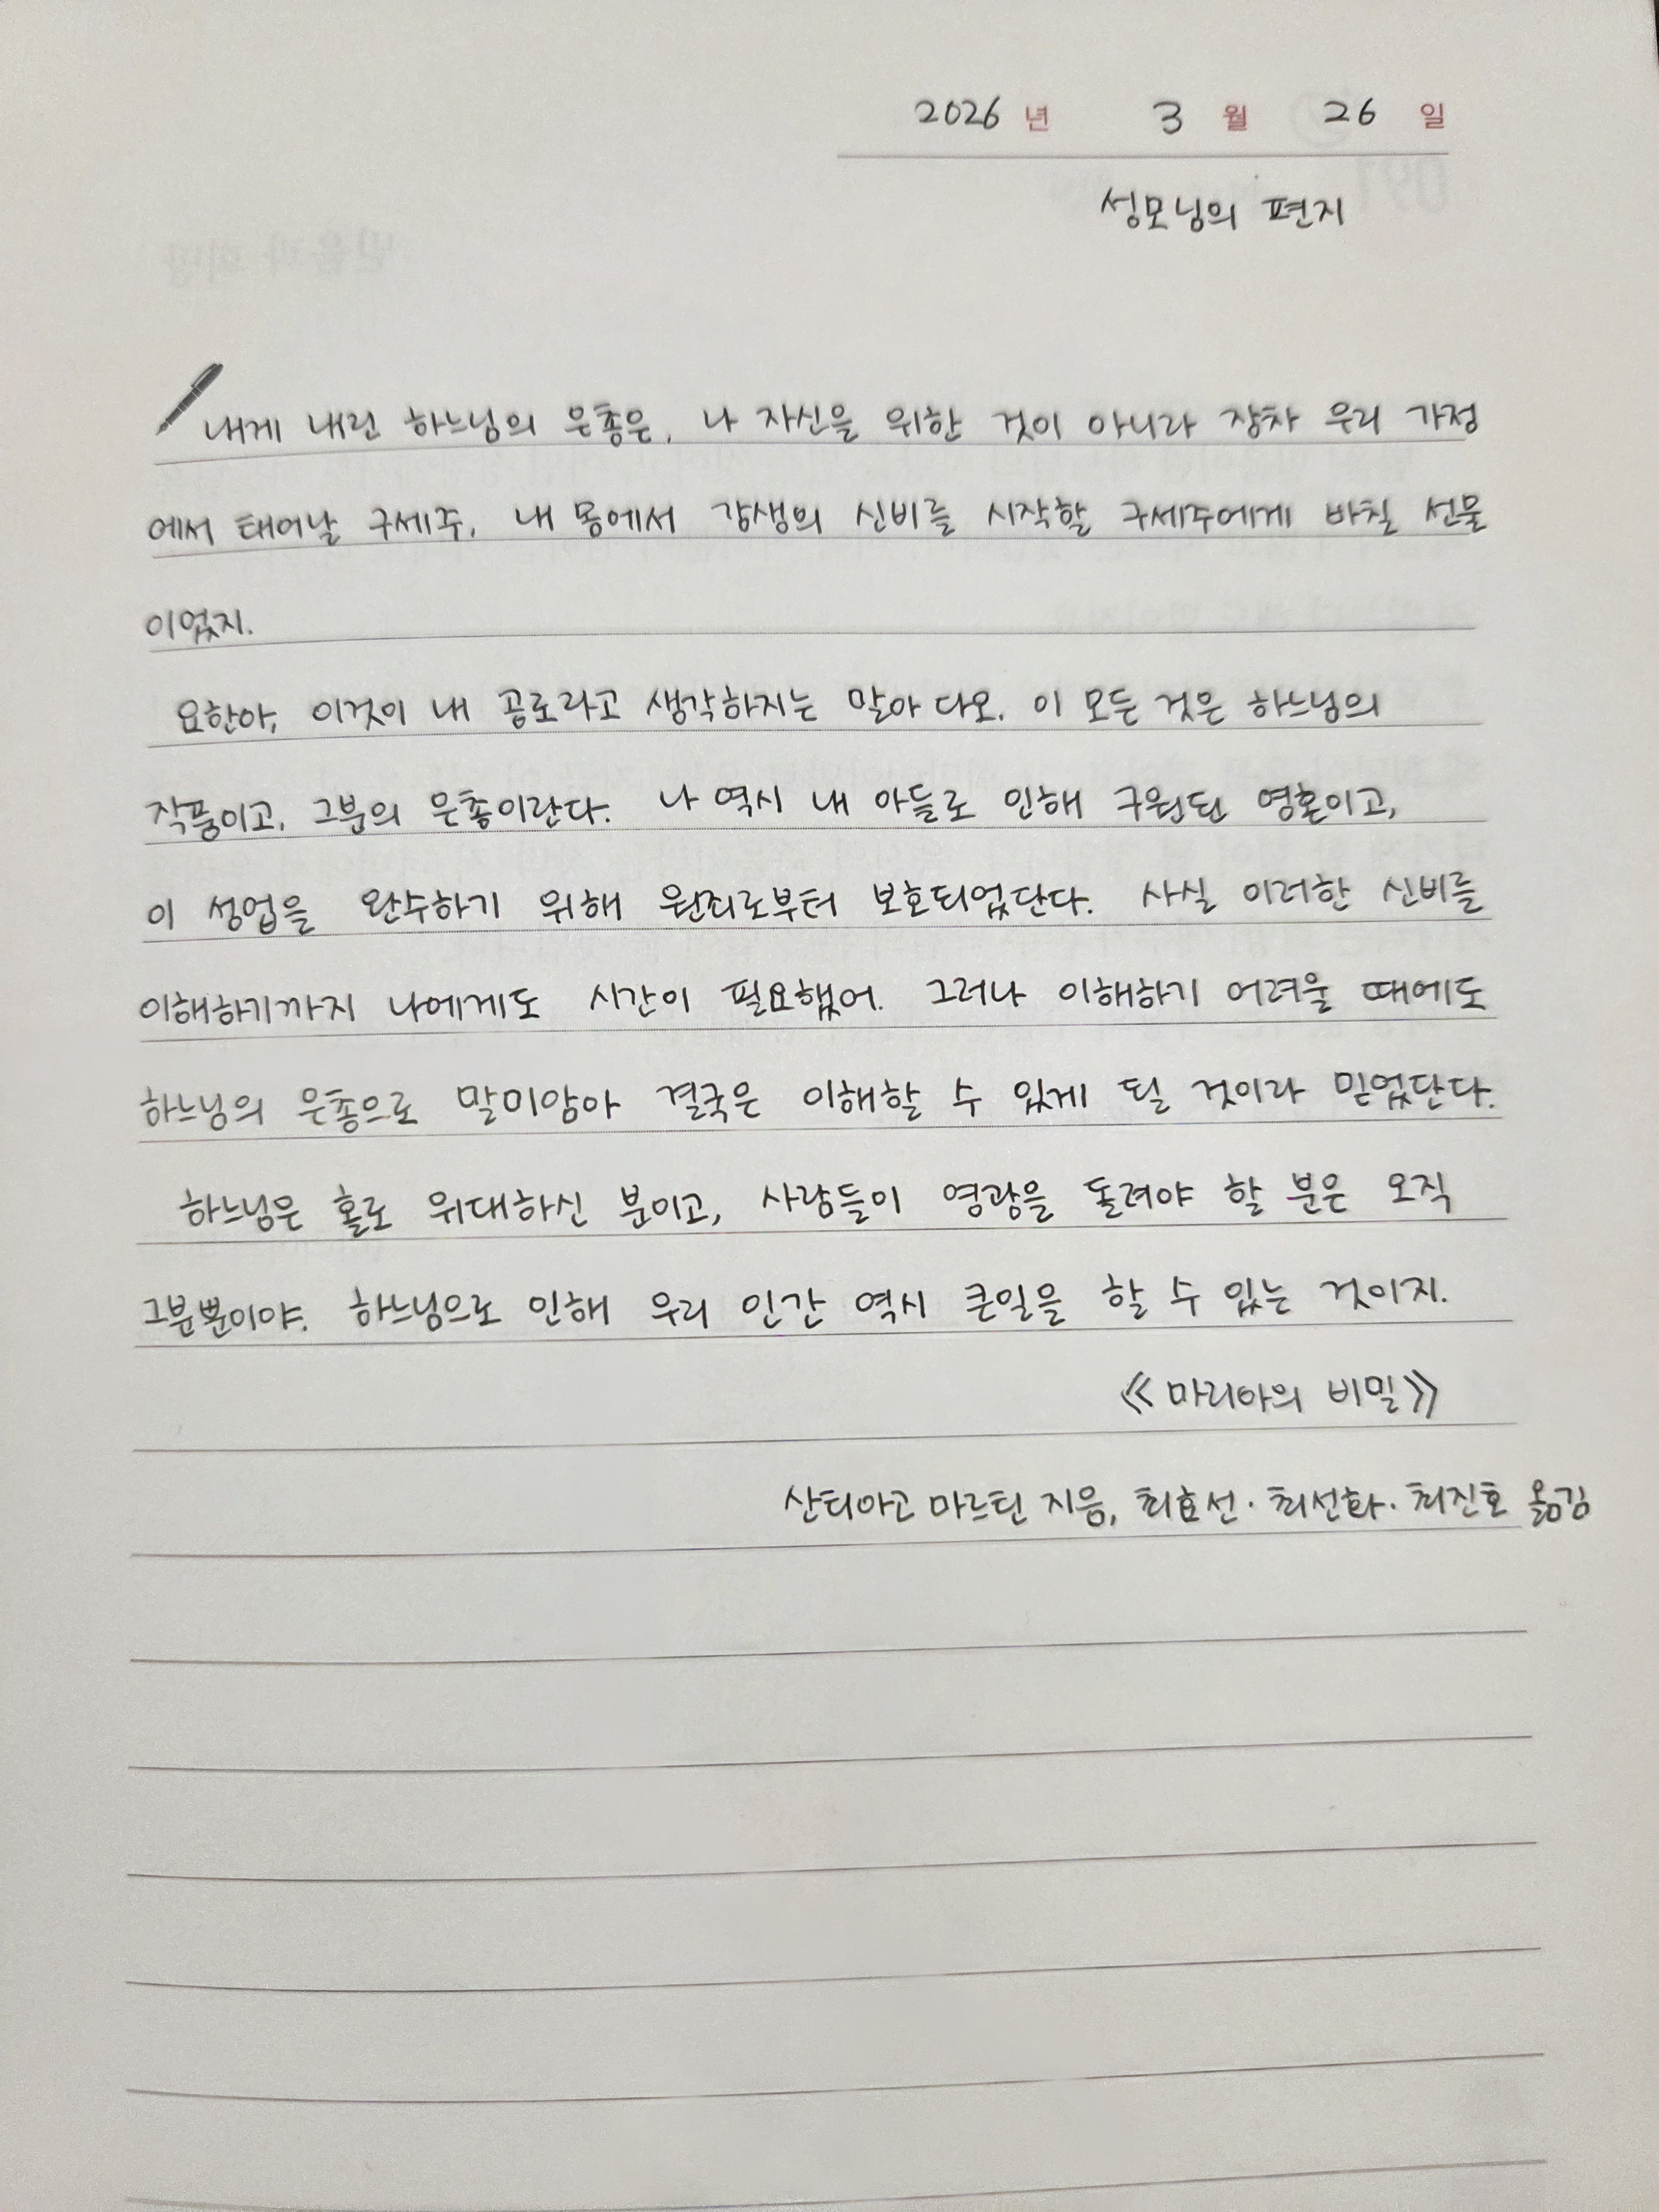 2026 년 3 월 26 일
성모님의 편지
내게 내린 하느님의 은총은, 나 자신을 위한 것이 아니라 장차 우리 가정
에서 태어날 구세주, 내 몸에서 강생의 신비를 시작할 구세주에게 바칠 선물
이었지.
요한아, 이것이 내 공로라고 생각하지는 말아 다오. 이 모든 것은 하느님의
작품이고, 그분의 은총이란다. 나 역시 내 아들로 인해 구원된 영혼이고,
이 성업을 완수하기 위해 원죄로부터 보호되었단다. 사실 이러한 신비를
이해하기까지 나에게도 시간이 필요했어. 그러나 이해하기 어려울 때에도
하느님의 은총으로 말미암아 결국은 이해할 수 있게 될 것이라 믿었단다.
하느님은 홀로 위대하신 분이고, 사람들이 영광을 돌려야 할 분은 오직
그분뿐이야. 하느님으로 인해 우리 인간 역시 큰일을 할 수 있는 것이지.
《마리아의 비밀》
산티아고 마르틴 지음, 최효선·최선화·최진호 옮김